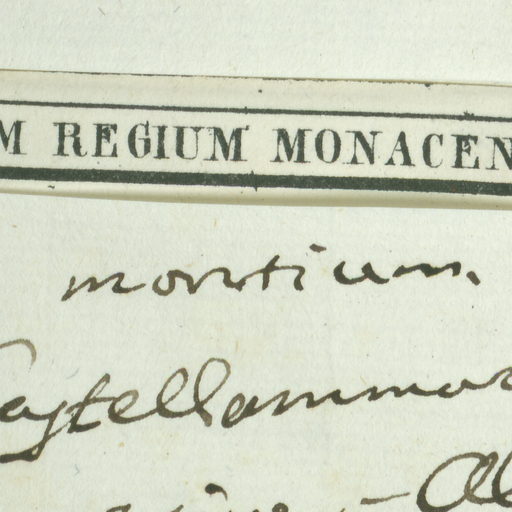 M REGIUM MONACEN
montium.
Castellammar